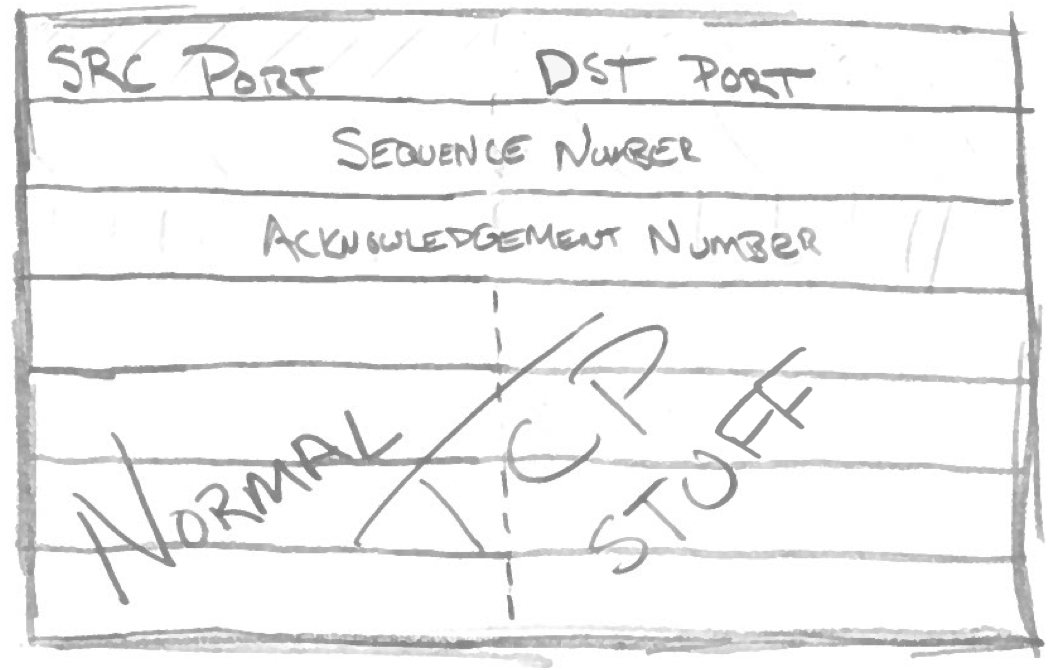 SRC PORT DST PORT
SEQUENCE NUMBER
ACKNOWLEDGEMENT NUMBER
NORMAL
TCP
STUFF